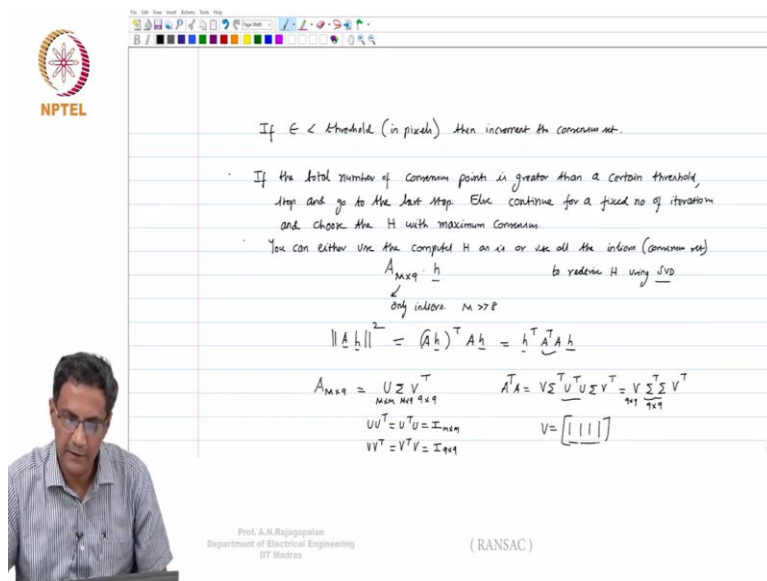 File Edit View Insert Actions Tools Help
Page Width
B I
NPTEL
If ∈ < threshold (in pixels) then increment the consensus set.
If the total number of consensus points is greater than a certain threshold,
stop and go to the last step. Else continue for a fixed no of iterations
and choose the H with maximum consensus
You can either use the computed H as is or use all the inliers (consensus set)
to rederive H using SVD
A_{M×9} · h
only inliers M >> 8
||A h||² = (A h)ᵀ A h = hᵀ Aᵀ A h
A_{M×9} = U Σ Vᵀ
M×M M×9 9×9
AᵀA = V Σᵀ Uᵀ U Σ Vᵀ = V Σᵀ Σ Vᵀ
9×9 9×9
UUᵀ = UᵀU = I_{M×M}
V = [| | | |]
VVᵀ = VᵀV = I_{9×9}
Prof. A.N.Rajagopalan
Department of Electrical Engineering
IIT Madras
( RANSAC )